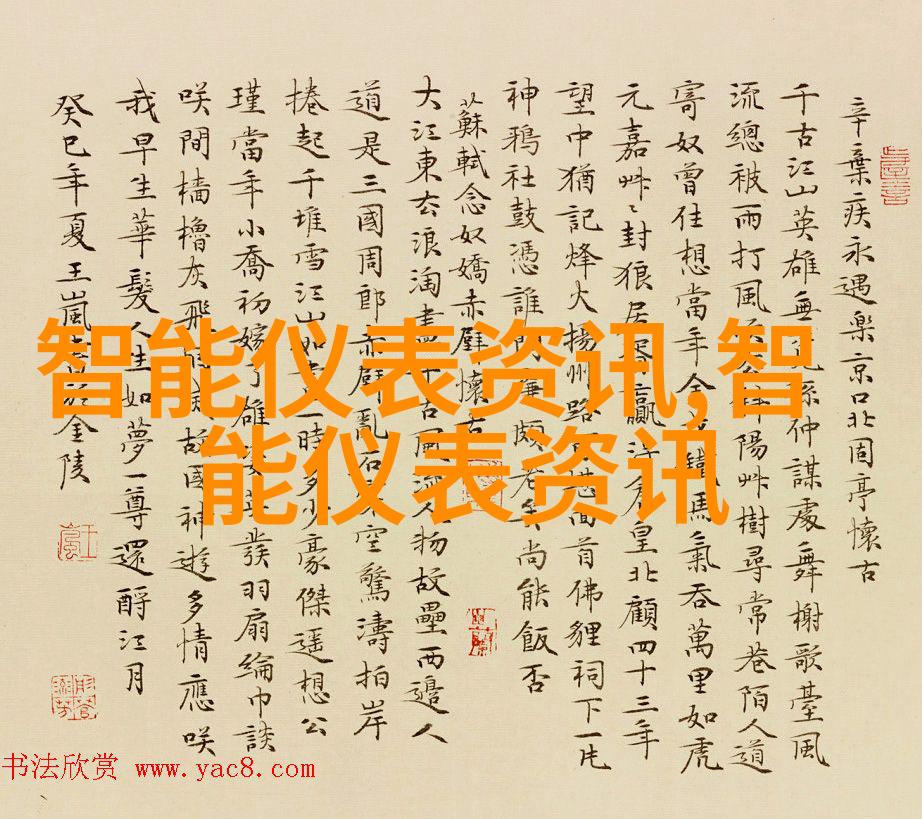 辛棄疾永遇楽京口北固亭懷古
千古江山英雄無孫仲謀處舞榭歌臺風
流總被雨打風斜陽艸樹尋常巷陌人道
寄奴曾住想當年金鐵馬氣吞萬里如虎
元嘉艸〻封狼居贏得倉皇北顧四十三年
望中猶記烽火揚州路回首佛貍祠下一片
神鴉社鼓憑誰問廉頗老矣尚能飯否
蘇軾念奴嬌赤壁懷古
大江東去浪淘盡千古風流人物故壘西邊人
道是三國周郎赤壁亂石空驚濤拍岸
捲起千堆雪江山如一時多少豪傑遥想公
瑾當年小喬初嫁了雄姿英發羽扇綸巾談
咲間檣櫓灰飛故國神遊多情應咲
我早生華髮人生如夢一尊還酹江月
癸巳年夏王嵐書於金陵
智能仪表资讯,智
能仪表资讯
书法欣赏 www.yac8.com